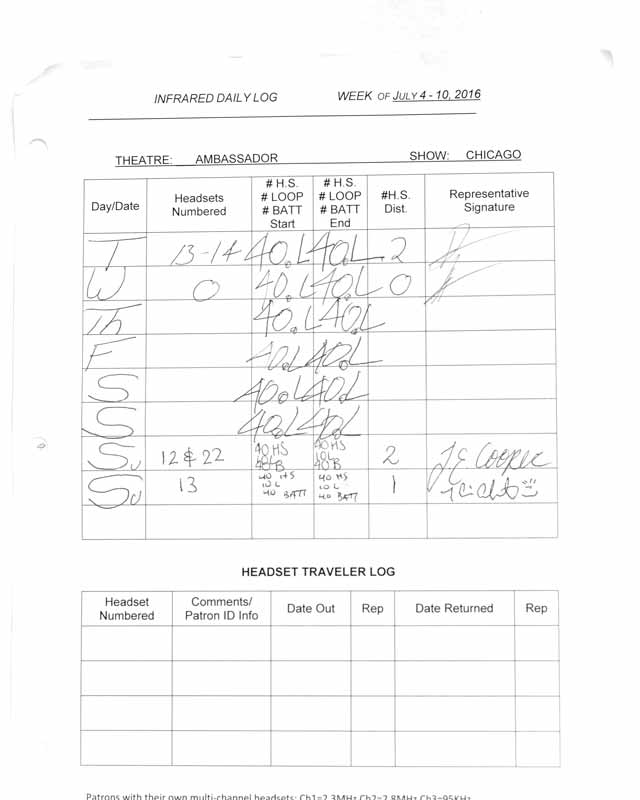 INFRARED DAILY LOG WEEK OF JULY 4 - 10, 2016
THEATRE: AMBASSADOR SHOW: CHICAGO
Day/Date Headsets Numbered # H.S. # LOOP # BATT Start # H.S. # LOOP # BATT End #H.S. Dist. Representative Signature
T 13-14 40.L 40.L 2
W 0 40.L 40.L 0
Th 40.L 40.L
F 40.L 40.L
S 40.L 40.L
S 40.L 40.L
Su 12 & 22 40 HS 40 HS 2 J E Cooper
10L 10L
40B 40B
Su 13 40 HS 40 HS 1
10 L 10 L
40 BATT 40 BATT
HEADSET TRAVELER LOG
Headset Numbered Comments/ Patron ID Info Date Out Rep Date Returned Rep
Patrons with their own multi-channel headsets: Ch1=2.3MHz Ch2=2.8MHz Ch3=95KHz